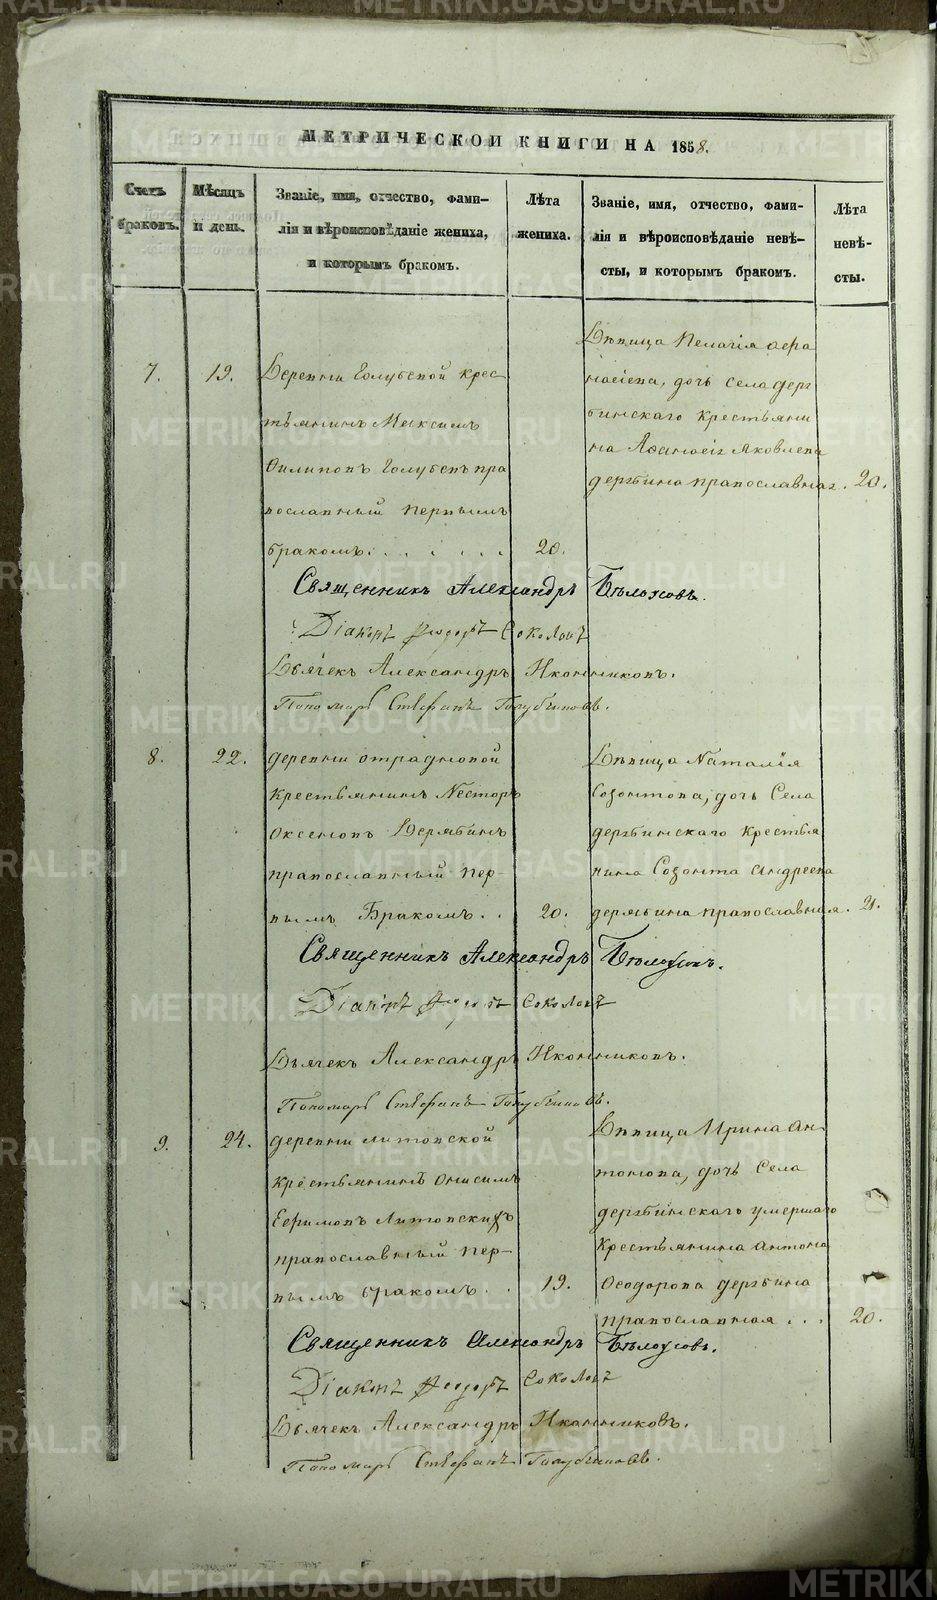 МЕТРИЧЕСКОЙ КНИГИ НА 1858.
Счетъ браковъ.
Мѣсяцъ и день.
Званіе, имя, отчество, фами-
лія и вѣроисповѣданіе жениха,
и которымъ бракомъ.
Лѣта жениха.
Званіе, имя, отчество, фами-
лія и вѣроисповѣданіе невѣ-
сты, и которымъ бракомъ.
Лѣта невѣ-
сты.
7. 19.
Деревни Голубевой крес
тьянинъ Максимъ
Филиповъ Голубевъ пра
вославный первымъ
бракомъ. 20.
Дѣвица Пелагія Афа
насіева, дочь села деря
бинскаго крестьяни
на Афанасія Яковлева
дерябина православная. 20.
Священникъ Александръ Бѣлоусовъ.
Діаконъ Феодоръ Соколовъ
Дьячекъ Александръ Иконниковъ.
Пономарь Стефанъ Голубчиковъ.
8. 22.
деревни отрадновой
крестьянинъ Несторъ
Оксеновъ Дерябинъ
православный пер-
вымъ Бракомъ. . 20.
Дѣвица Наталія
Созонтова, дочь Села
дерябинскаго крестья
нина Созонта Андреева
дерябина православная. 21.
Священникъ Александръ Бѣлоусовъ.
Діаконъ Феодоръ Соколовъ
Дьячекъ Александръ Иконниковъ.
Пономарь Стефанъ Голубчиковъ.
9. 24.
деревни литовской
крестьянинъ Онисимъ
Ефимовъ Литовскихъ
православный пер-
вымъ бракомъ. . . 19.
Дѣвица Ирина Ан-
тонова, дочь Села
дерябинскаго умершаго
крестьянина Антона
Феодорова дерябина
православная . . . 20.
Священникъ Александръ Бѣлоусовъ.
Діаконъ Феодоръ Соколовъ
Дьячекъ Александръ Иконниковъ.
Пономарь Стефанъ Голубчиковъ.
METRIKI.GASO-URAL.RU